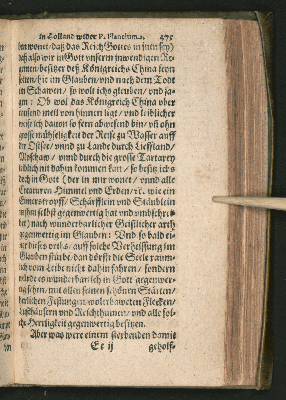 in Holland wider P. Plancium. 475
ben wonit / daß das Reich Gottes in jnen sey)
daß also wir in Gott unserm inwendigen Re-
genten besitzer deß Königreichs China seyn
selten / hie im Glauben / und nach dem Todt
in Schawen / so wolt ichs gleuben / und sa-
gen: Ob wol das Königreich China uber
tausend meil von hinnen ligt / und leiblicher
weise ich davon so fern abwesend bin / uñ ohn
grosse mühseligkeit der Reise zu Wasser auff
der Ostsee / unnd zu Lande durch Lieffland /
Moschaw / unnd durch die grosse Tartarey
leiblich nit dahin kommen kan / so besitz ich s
doch in Gott (der in mir wonet / unnd alle
Creaturen Himmel und Erden / ꝛc. wie ein
Einerstropff / Schärfflein und Stäublein
in ihm selbst gegenwertig hat und umbschrei-
bet) nach wunderbarlicher Geistlicher art
gegenwertig im Glauben: Und so bald ei-
ner dieses orths / auff solche Verheissung im
Glauben stürbe / dan dörfft die Seele raum-
lich vom Leibe nicht dahin fahren / sondern
würde es wunderbarlich in Gott gegenwer-
tig sehen / mit allen seinen schönen Stätten /
herrlichen Festungen / wolerbaweten Flecken /
Lusthäusern und Reichthumen / und alle sol-
che Herrligkeit gegenwertig besitzen.
Aber was were einem sterbenden damit
Ee ij geholf-